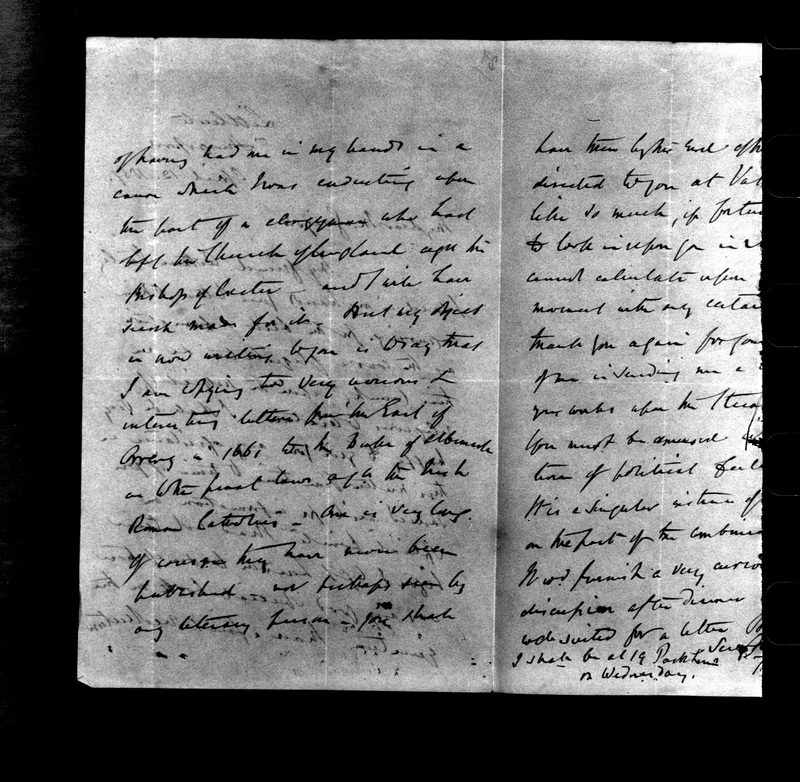 of having had me in my hands in a
cause which I was conducting upon
the part of a clergyman who had
left the Church of England agst the
Bishop of Exeter – and I will have
search made for it. But my object
in now writing to you is to say that
I am copying two very curious &
interesting letters from the Earl of
Orrery in 1661 to the Duke of Albemarle
on the
Roman Catholics – One is very long.
Of course they have never been
published nor perhaps seen by
any literary person – you shall
have them by the end of
directed to you at
like so much, if
to look in upon you in
cannot calculate upon
moment with any
thank you again for your
of me in sending me a
your works upon the
You must be amused
tion of political
It is a singular instance of
on the part of the
It wd furnish a very curious
discussion after dinner
wd suited for a letter
I shall be at 19 Park Lane
on Wednesday.